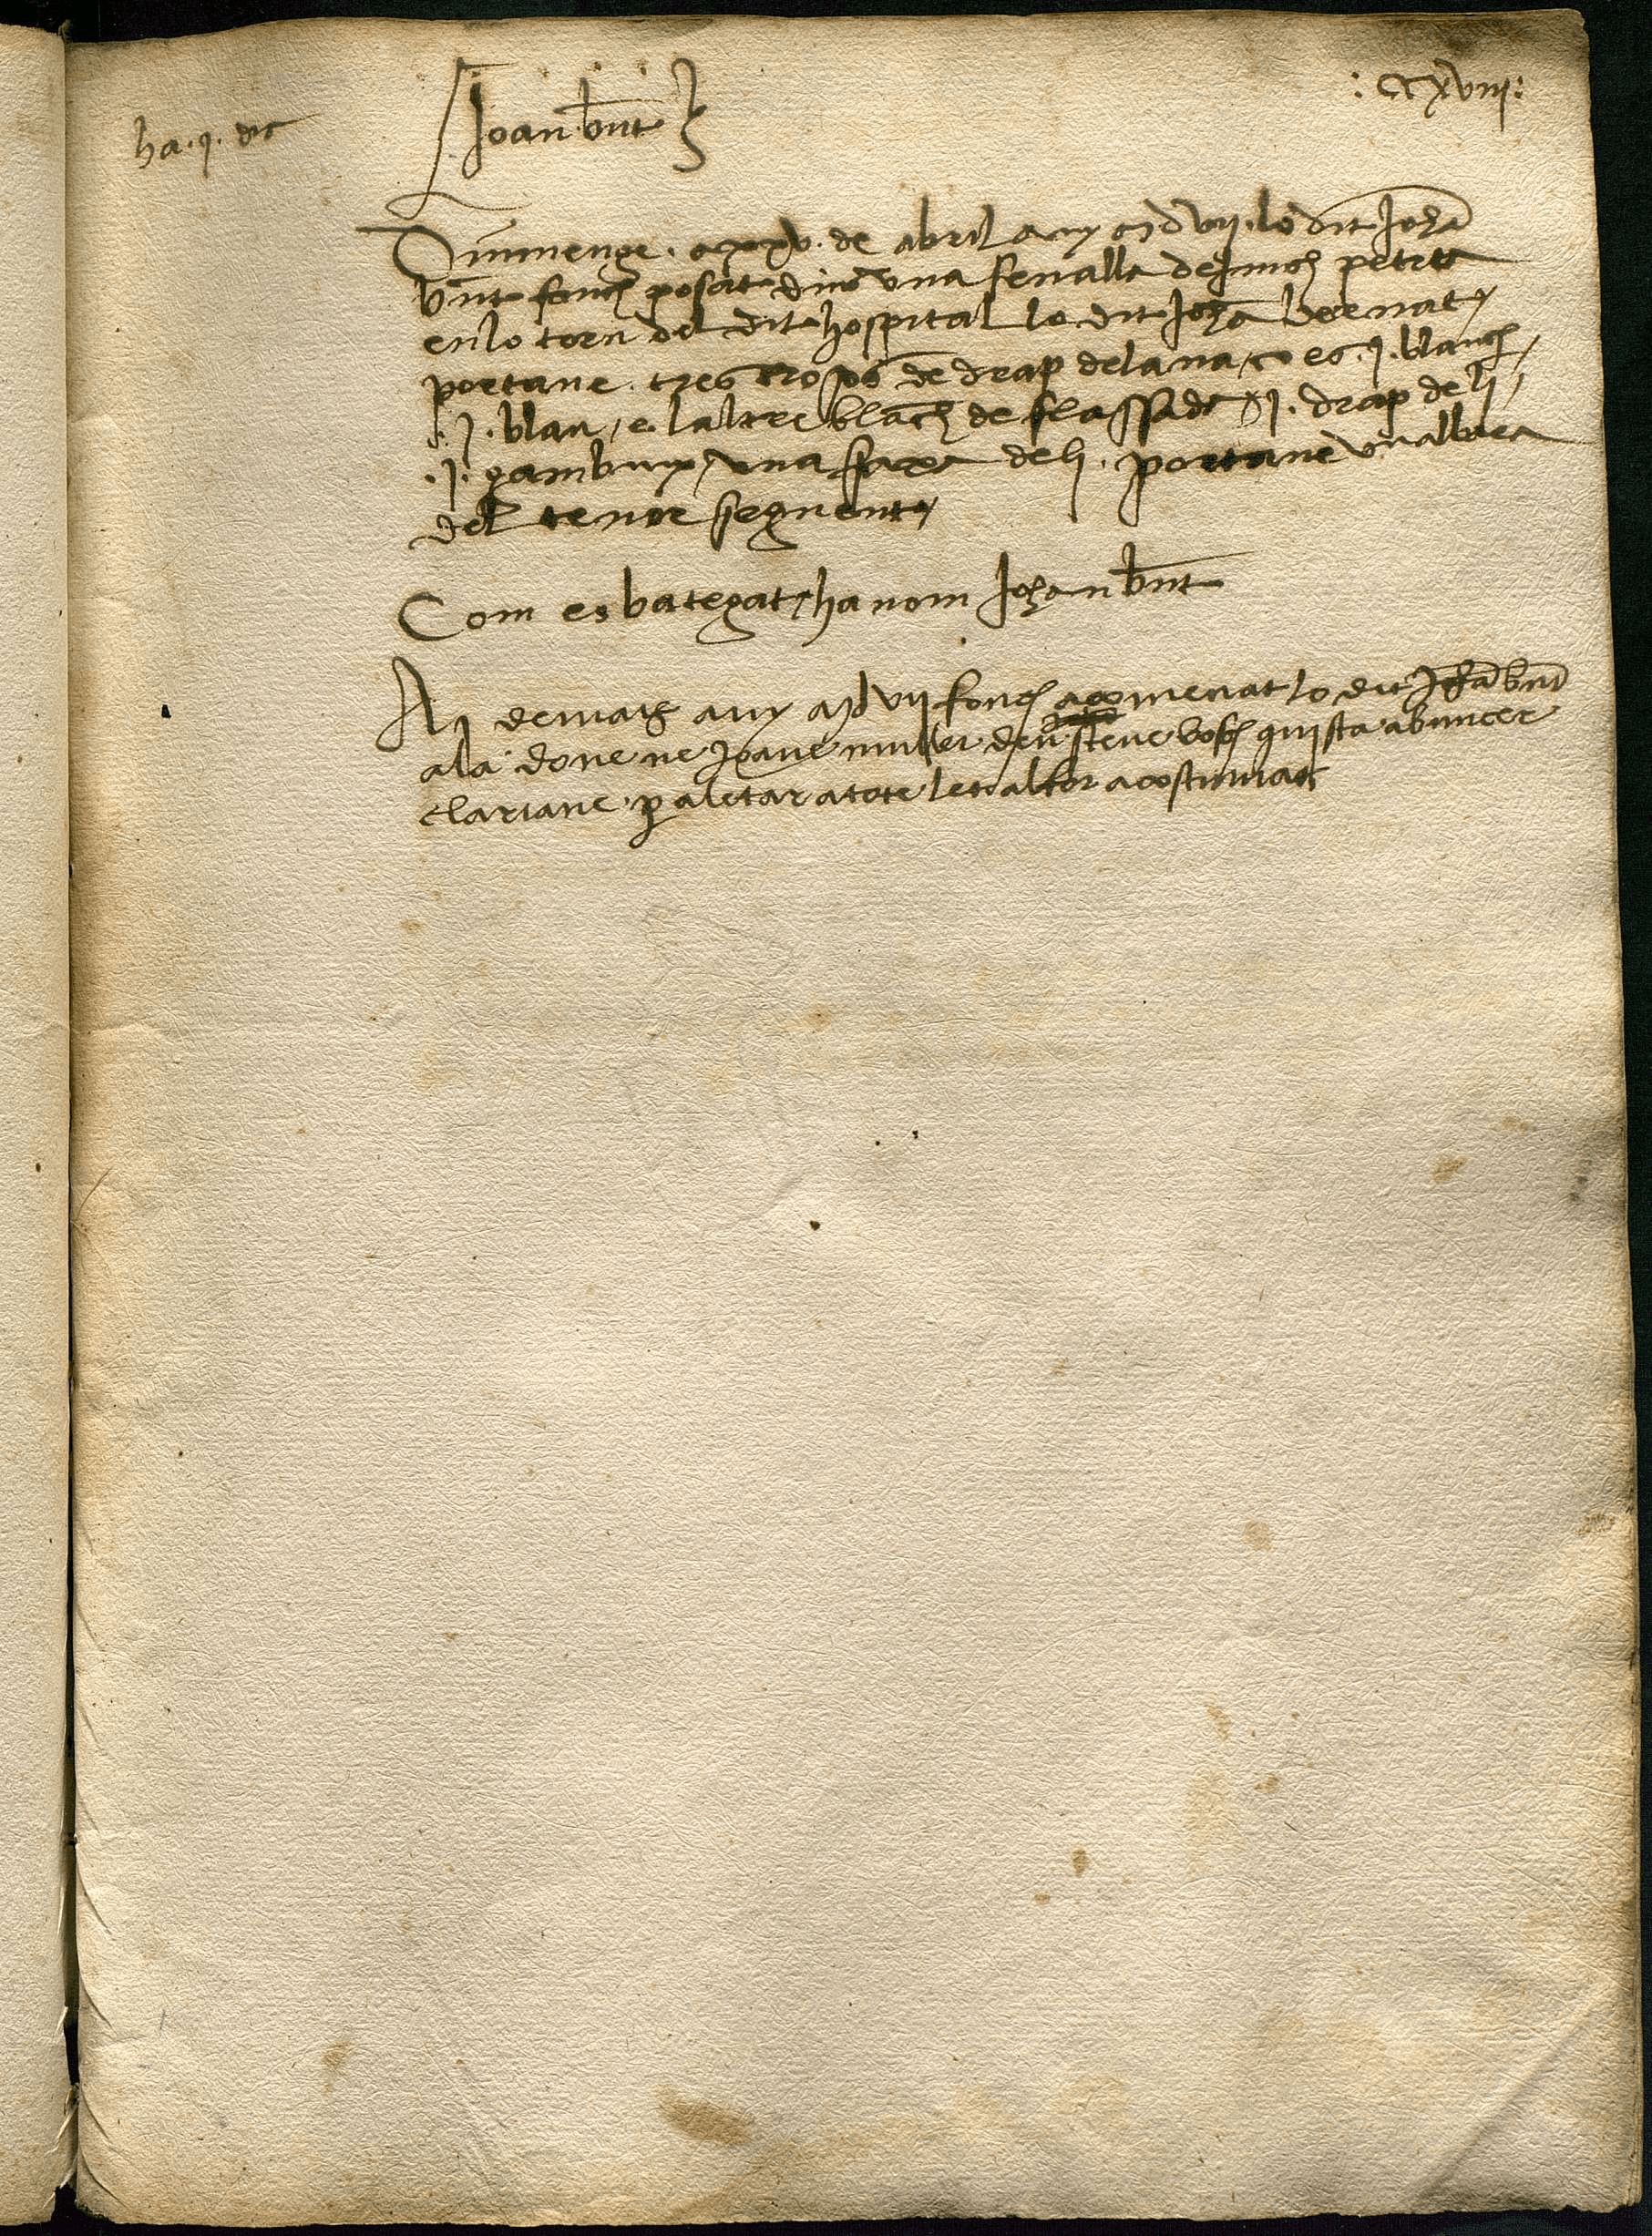 : CCXVIIII :
ha .j. dit
Joan b̄nt
Diumenge . a xxv . de abril any MDVII . lo dit Johā
b̄nt fonch posat dins una senalla de junch petita
en lo torn del dit hospital lo dit Johā bernat /
portave . tres trosos de drap de lana / ço es . j . blanch /
. j . blau / e laltre blāch de flassade / j . drap de li /
. j . gambuix / una faxa de li . portave un albara
del tenor seguent /
Com es bategat / ha nom Johan b̄nt
A j de maig any MDVII fonch acomenat lo dit Johā b̄nt
a la done ne Joane muller den steve bosch qui sta
clariane . p aletar a tote let al for acostumat